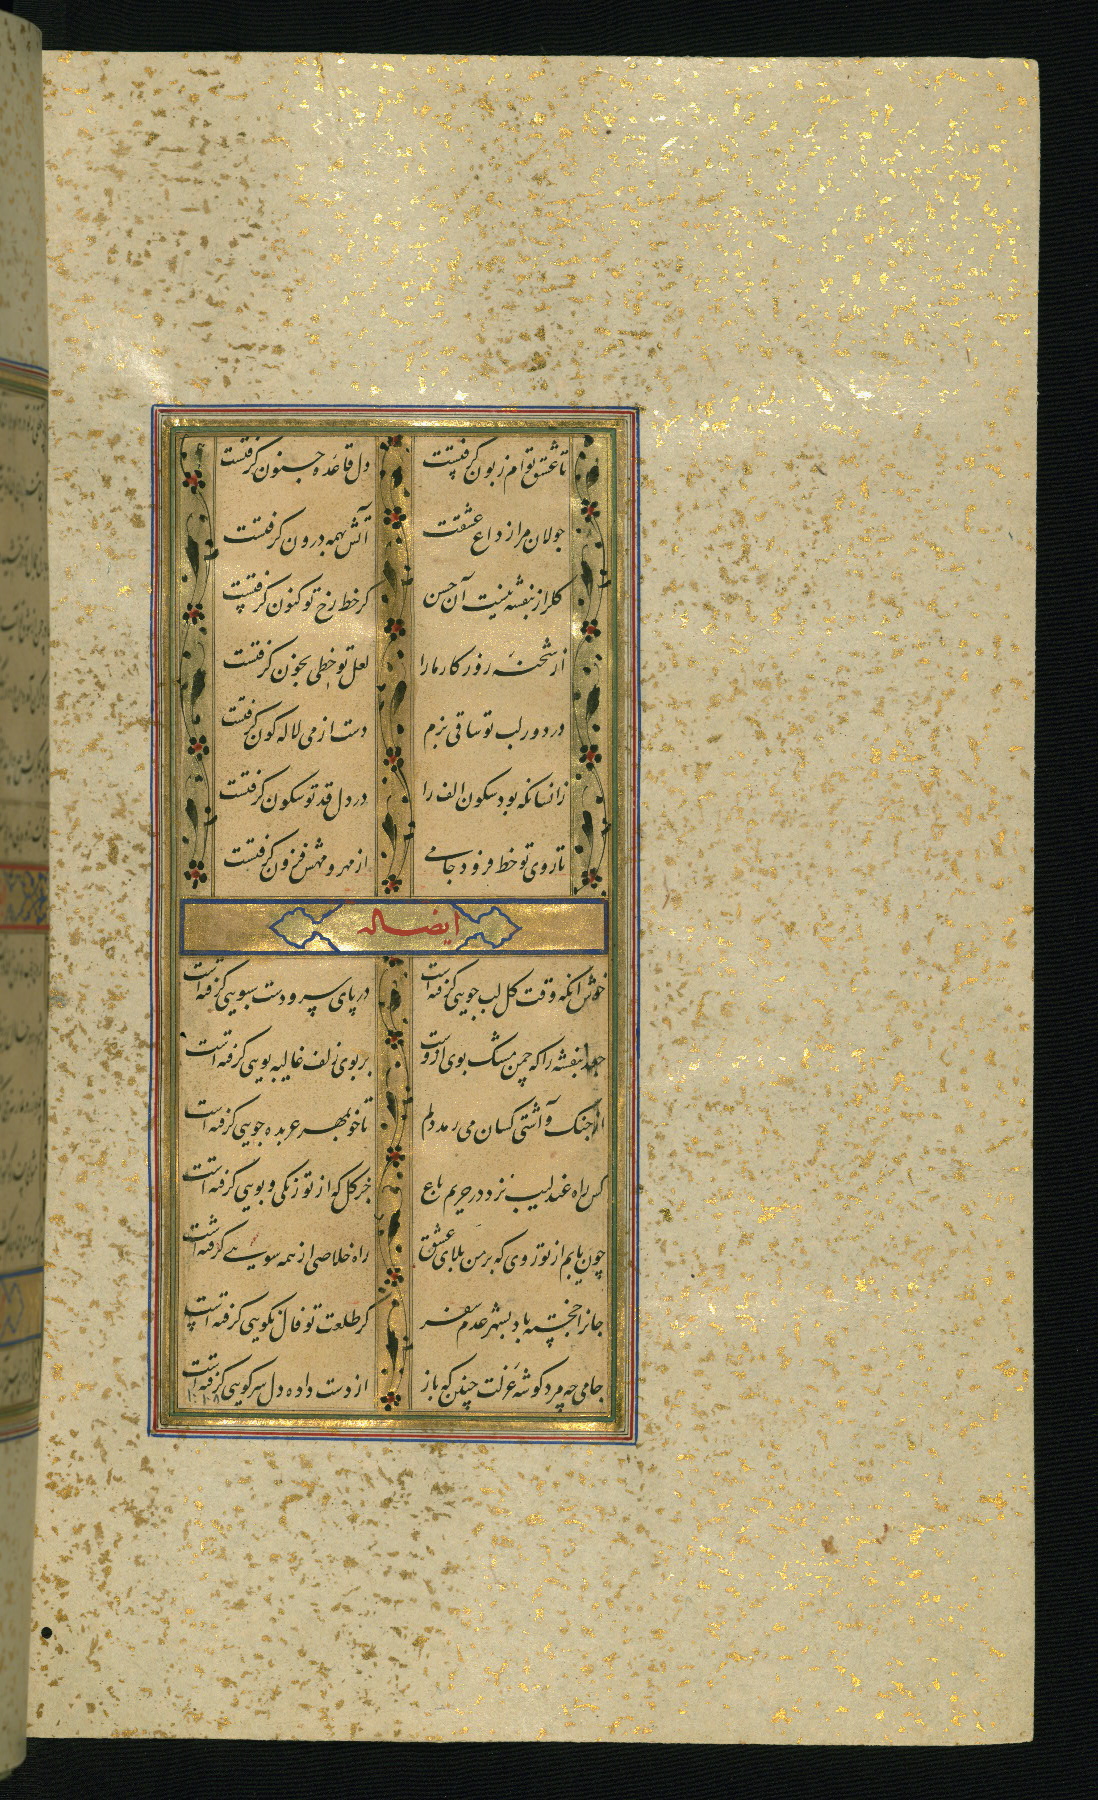 تا عشق توام زبون گرفتست
دل قاعده جنون گرفتست
جولان مرا ز داغ عشقت
آتش همه درون گرفتست
گل را ز بنفشه نیست آن حسن
کز خط رخ تو کنون گرفتست
از شحنه روزگار ما را
لعل تو خطی بخون گرفتست
در دور لب تو ساقی بزم
دست از می لاله کون گرفتست
زانسانکه بود سکون الف را
در دل قد تو سکون گرفتست
تا روی تو خط فزود جامی
از مهر و مهش فزون گرفتست
ایضا له
خوش آنکه وقت گل لب جویی گرفته است
در پای سرو دست سبویی گرفته است
جعد بنفشه را که چمن مشک بوی ازوست
بر بوی زلف غالیه بویی گرفته است
از جنگ و آشتی کسان می رمد دلم
تا خو بمهر عربده جویی گرفته است
کس راه عندلیب نزد در حریم باغ
جز گل که از تو رنگی و بویی گرفته است
چون یابم از تو روی که بر من بلای عشق
راه خلاصی از همه سویی گرفته است
جانرا خجسته باد بشهر عدم سفر
کز طلعت تو فال نکویی گرفته است
جامی چه مرد گوشه عزلت چنین که باز
از دست داده دل سر کویی گرفته است